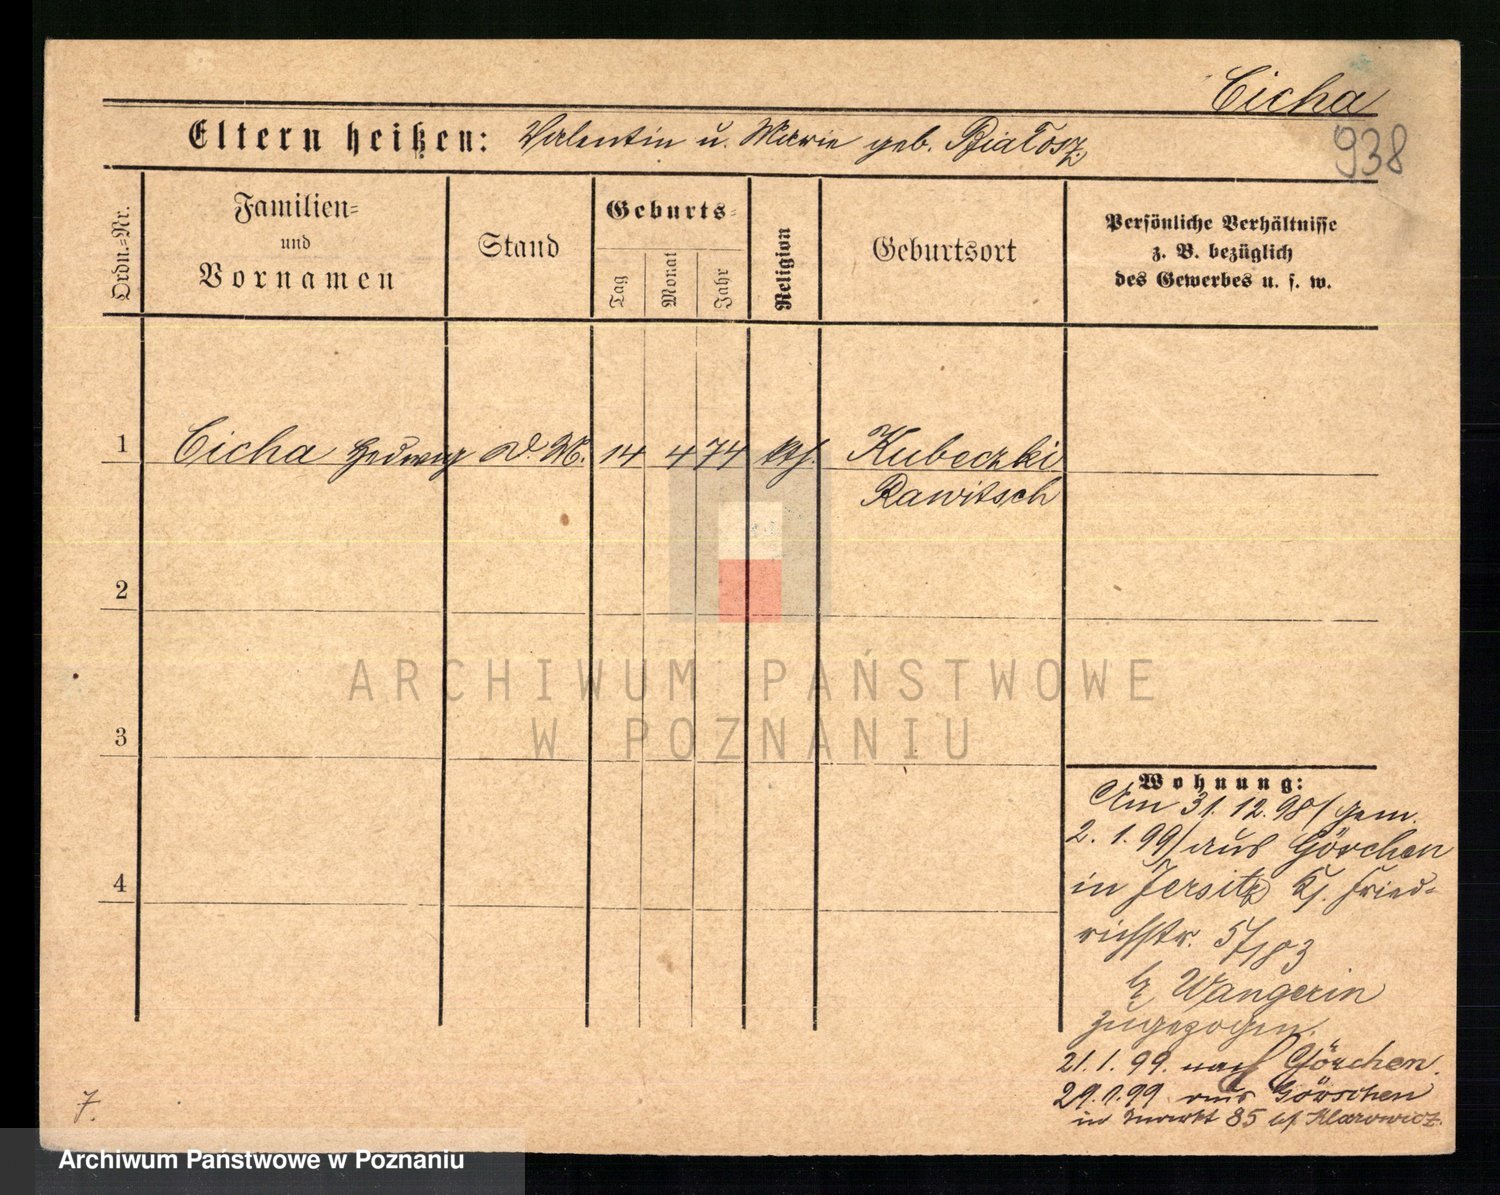 Cicha
938
Eltern heißen: Valentin u. Marie geb. Białosz
Ordn.=Nr.
Familien=
und
Vornamen
Stand
Geburts=
Tag
Monat
Jahr
Religion
Geburtsort
Persönliche Verhältnisse
z. B. bezüglich
des Gewerbes u. s. w.
1 Cicha Hedwig D. M. 14 4 74 kth. Kubeczki
Rawitsch
2
3
4
ARCHIWUM PAŃSTWOWE
W POZNANIU
Wohnung:
Am 31. 12. 98/gem.
2. 1. 99/aus Görchen
in Jersitz Fried=
richstr. 57/83
b. Wangerin
zugezogen.
21. 1. 99. nach Görchen.
29. 1. 99 aus Görschen
in Markt 85 bei Klarowicz.
7.
Archiwum Państwowe w Poznaniu